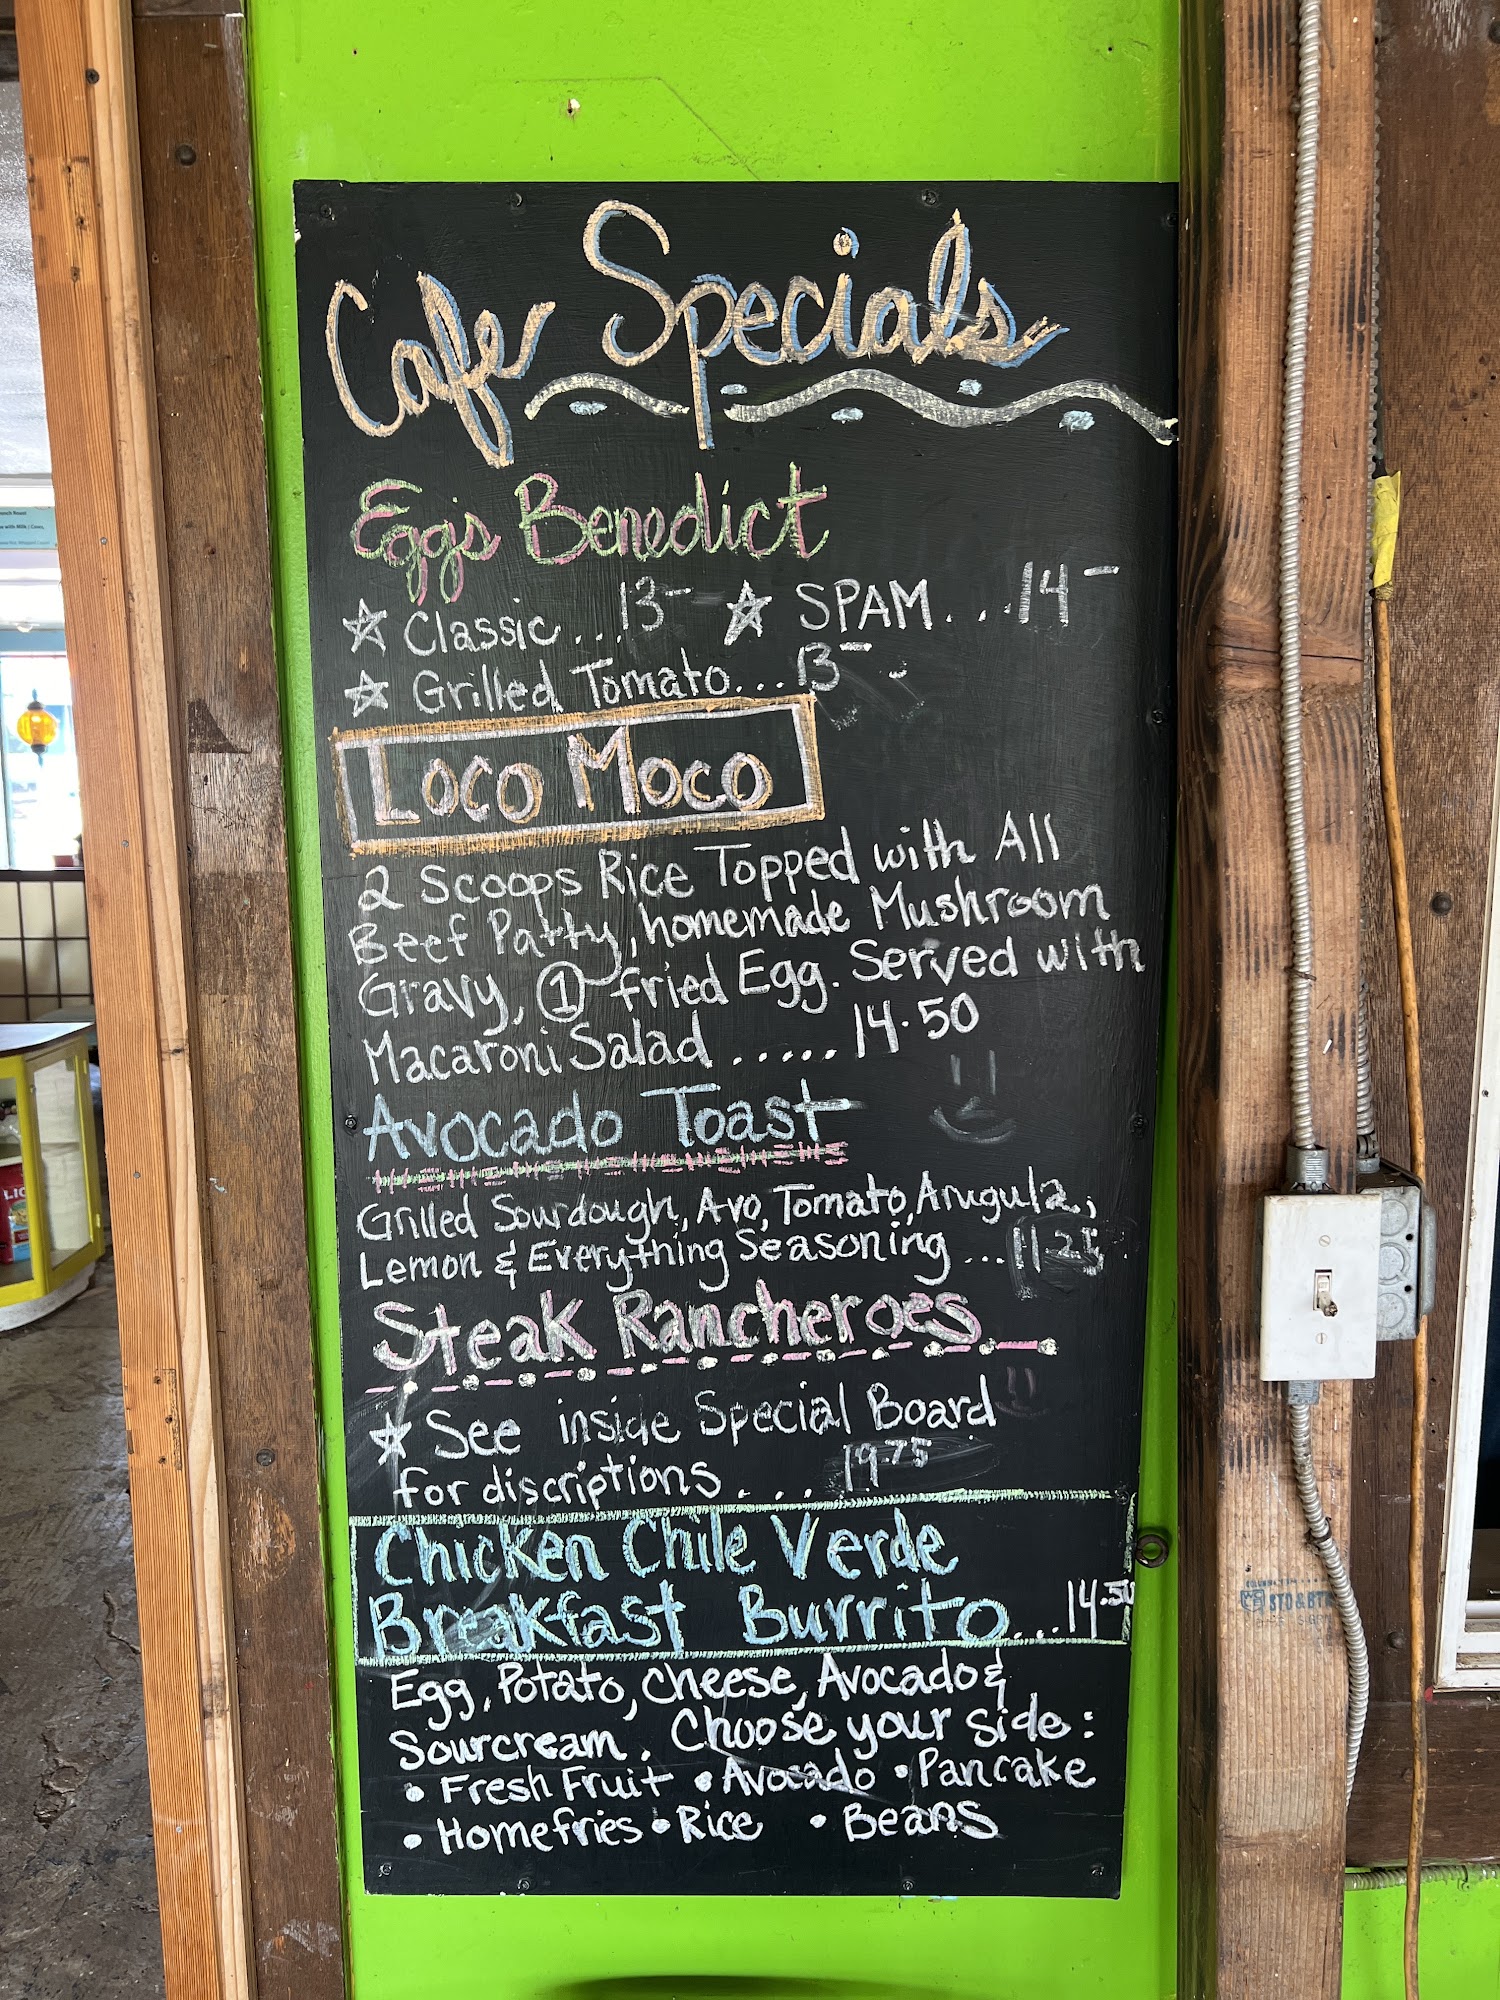 Cafe Specials
Eggs Benedict
☆ Classic...13- ☆ SPAM...14-
☆ Grilled Tomato...13-
Loco Moco
2 Scoops Rice Topped with All
Beef Patty, homemade Mushroom
Gravy, ① fried Egg. Served with
Macaroni Salad ..... 14.50
Avocado Toast
Grilled Sourdough, Avo, Tomato, Arugula,
Lemon & Everything Seasoning ...11.25
Steak Rancheroes
☆ See inside Special Board
for discriptions .... 19.75
Chicken Chile Verde
Breakfast Burrito....14.50
Egg, Potato, Cheese, Avocado &
Sourcream. Choose your side:
• Fresh Fruit • Avocado • Pancake
• Homefries • Rice • Beans
STD&BTR